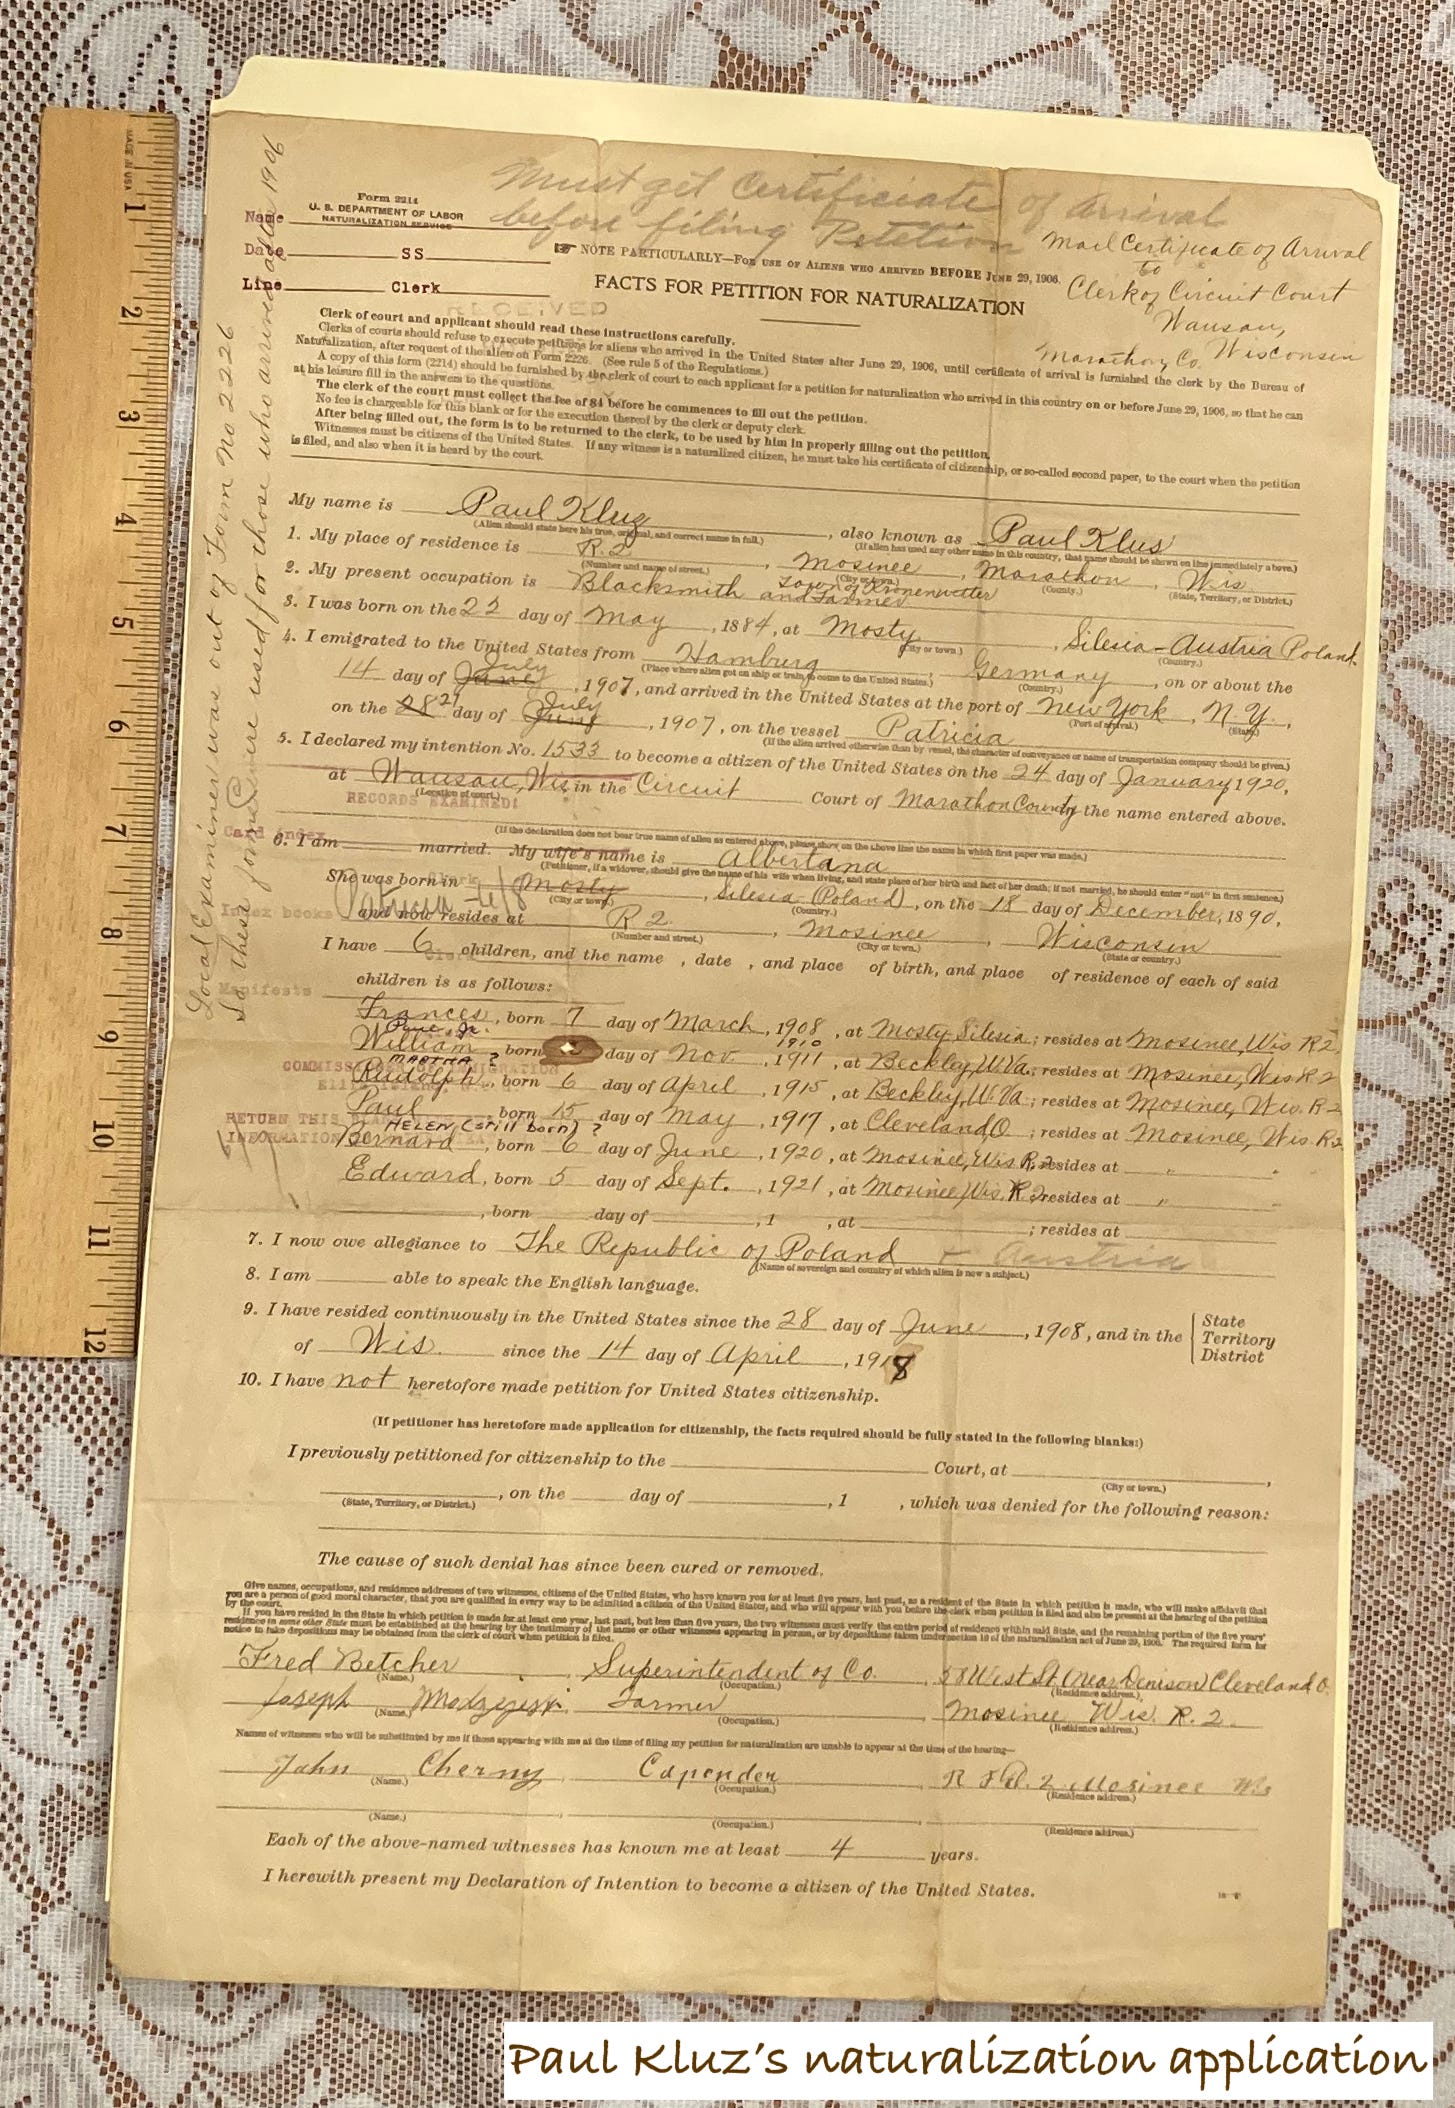 Must get Certificiate of Arrival
before filing Petetion
Mail Certificate of Arrival
to
Clerk of Circuit Court
Wausau,
Marathon Co. Wisconsin
Form 2214
U. S. DEPARTMENT OF LABOR
NATURALIZATION SERVICE
Name
Date SS
Line Clerk
RECEIVED
☞ NOTE PARTICULARLY—FOR USE OF ALIENS WHO ARRIVED BEFORE JUNE 29, 1906.
FACTS FOR PETITION FOR NATURALIZATION
Clerk of court and applicant should read these instructions carefully.
Clerks of courts should refuse to execute petitions for aliens who arrived in the United States after June 29, 1906, until certificate of arrival is furnished the clerk by the Bureau of
Naturalization, after request of the alien on Form 2226. (See rule 5 of the Regulations.)
A copy of this form (2214) should be furnished by the clerk of court to each applicant for a petition for naturalization who arrived in this country on or before June 29, 1906, so that he can
at his leisure fill in the answers to the questions.
The clerk of the court must collect the fee of $4 before he commences to fill out the petition.
No fee is chargeable for this blank or for the execution thereof by the clerk or deputy clerk.
After being filled out, the form is to be returned to the clerk, to be used by him in properly filling out the petition.
Witnesses must be citizens of the United States. If any witness is a naturalized citizen, he must take his certificate of citizenship, or so-called second paper, to the court when the petition
is filed, and also when it is heard by the court.
My name is Paul Kluz, also known as Paul Klus
(Alien should state here his true, original, and correct name in full.) (If alien has used any other name in this country, that name should be shown on line immediately above.)
1. My place of residence is R. 2, Mosinee, Marathon, Wis.
(Number and name of street.) (City or town.) (County.) (State, Territory, or District.)
Town of Kronenwetter
2. My present occupation is Blacksmith and Farmer
3. I was born on the 22 day of May, 1884, at Mosty, Silesia - Austria Poland.
(City or town.) (Country.)
4. I emigrated to the United States from Hamburg, Germany, on or about the
(Place where alien got on ship or train to come to the United States.) (Country.)
14 day of June July, 1907, and arrived in the United States at the port of New York, N. Y.,
(Port of arrival.) (State.)
on the 28 27 day of June July, 1907, on the vessel Patricia
(If the alien arrived otherwise than by vessel, the character of conveyance or name of transportation company should be given.)
5. I declared my intention No. 1533 to become a citizen of the United States on the 24 day of January, 1920,
at Wausau, Wis. in the Circuit Court of Marathon County the name entered above.
(Location of court.)
RECORDS EXAMINED:
(If the declaration does not bear true name of alien as entered above, please show on the above line the name in which first paper was made.)
Card index
6. I am married. My wife's name is Albertana
(Petitioner, if a widower, should give the name of his wife when living, and state place of her birth and fact of her death; if not married, he should enter "not" in first sentence.)
She was born in Mosty, Silesia (Poland), on the 18 day of December, 1890,
(City or town.) (Country.)
Index books
and now resides at R 2, Mosinee, Wisconsin
(Number and street.) (City or town.) (State or country.)
I have 6 children, and the name , date , and place of birth, and place of residence of each of said
children is as follows:
Manifests
Frances, born 7 day of March, 1908, at Mosty Silesia; resides at Mosinee, Wis R 2.
Paul Jr. 1910
William, born day of Nov, 1911, at Beckley, W. Va.; resides at Mosinee, Wis R 2
MARTHA ?
COMMISSIONER OF IMMIGRATION
Rudolph, born 6 day of April, 1915, at Beckley, W. Va; resides at Mosinee, Wis. R 2
Paul, born 15 day of May, 1917, at Cleveland, O; resides at Mosinee, Wis. R 2
RETURN THIS
INFORMATION
HELEN (still born) ?
Bernard, born 6 day of June, 1920, at Mosinee, Wis R. 2 resides at " "
Edward, born 5 day of Sept., 1921, at Mosinee, Wis. R 2 resides at " "
, born day of , 1 , at ; resides at
7. I now owe allegiance to The Republic of Poland + Austria
(Name of sovereign and country of which alien is now a subject.)
8. I am able to speak the English language.
9. I have resided continuously in the United States since the 28 day of June, 1908, and in the State Territory District
of Wis. since the 14 day of April, 1918
10. I have not heretofore made petition for United States citizenship.
(If petitioner has heretofore made application for citizenship, the facts required should be fully stated in the following blanks:)
I previously petitioned for citizenship to the Court, at ,
(City or town.)
, on the day of , 1 , which was denied for the following reason:
(State, Territory, or District.)
The cause of such denial has since been cured or removed.
Give names, occupations, and residence addresses of two witnesses, citizens of the United States, who have known you for at least five years, last past, as a resident of the State in which petition is made, who will make affidavit that
you are a person of good moral character, that you are qualified in every way to be admitted a citizen of the United States, and who will appear with you before the clerk when petition is filed and also be present at the hearing of the petition
by the court.
If you have resided in the State in which petition is made for at least one year, last past, but less than five years, the two witnesses must verify the entire period of residence within said State, and the remaining portion of the five years'
residence in some other State must be established at the hearing by the testimony of the same or other witnesses appearing in person, or by depositions taken under section 10 of the naturalization act of June 29, 1906. The required form for
notice to take depositions may be obtained from the clerk of court when petition is filed.
Fred Betcher, Superintendent of Co., 58 West St. (Near Denison) Cleveland O.
(Name.) (Occupation.) (Residence address.)
Joseph, Farmer, Mosinee Wis. R. 2.
(Name.) (Occupation.) (Residence address.)
Names of witnesses who will be substituted by me if those appearing with me at the time of filing my petition for naturalization are unable to appear at the time of the hearing—
John Cherny, Capender, R F D. 2 Mosinee Wis
(Name.) (Occupation.) (Residence address.)
(Name.) (Occupation.) (Residence address.)
Each of the above-named witnesses has known me at least 4 years.
I herewith present my Declaration of Intention to become a citizen of the United States.
Local Examiner was out of Form No 2226
So these forms were used for those who arrived after 1906
MADE IN USA
1
2
3
4
5
6
7
8
9
10
11
12
Paul Kluz's naturalization application